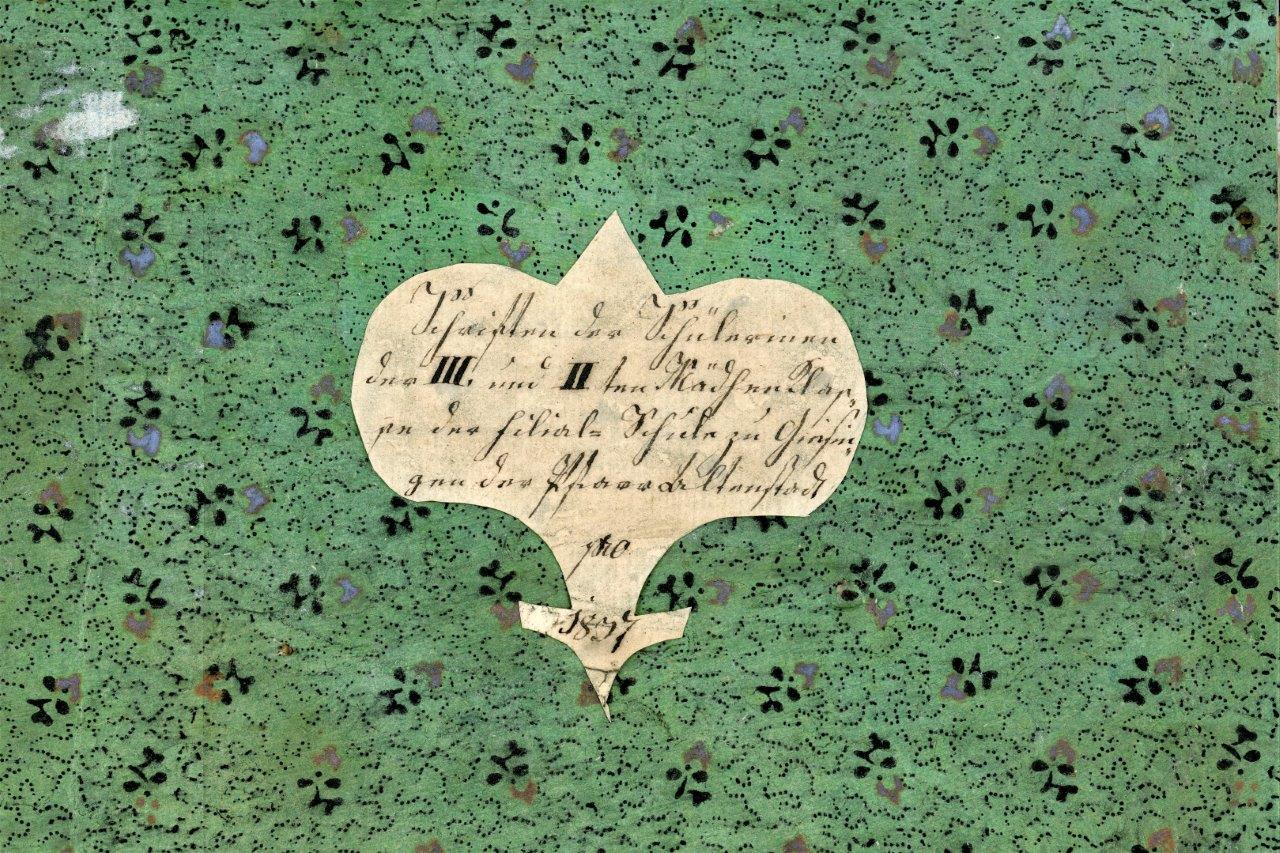 Schriften der Schülerinen
der III. und II ten Mädchen Klas=
se der Filial= Schule zu
gen der Pfarr Altenstadt
pro
1837